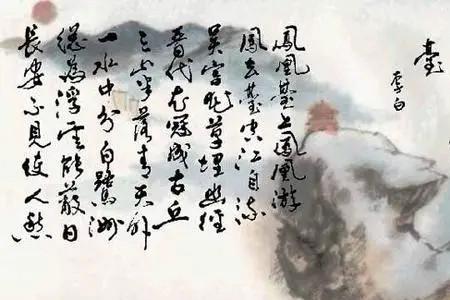 臺
李白
鳳凰臺上鳳凰游
鳳去臺空江自流
吳宮花草埋幽徑
晉代衣冠成古丘
三山半落青天外
一水中分白鷺洲
總為浮雲能蔽日
長安不見使人愁